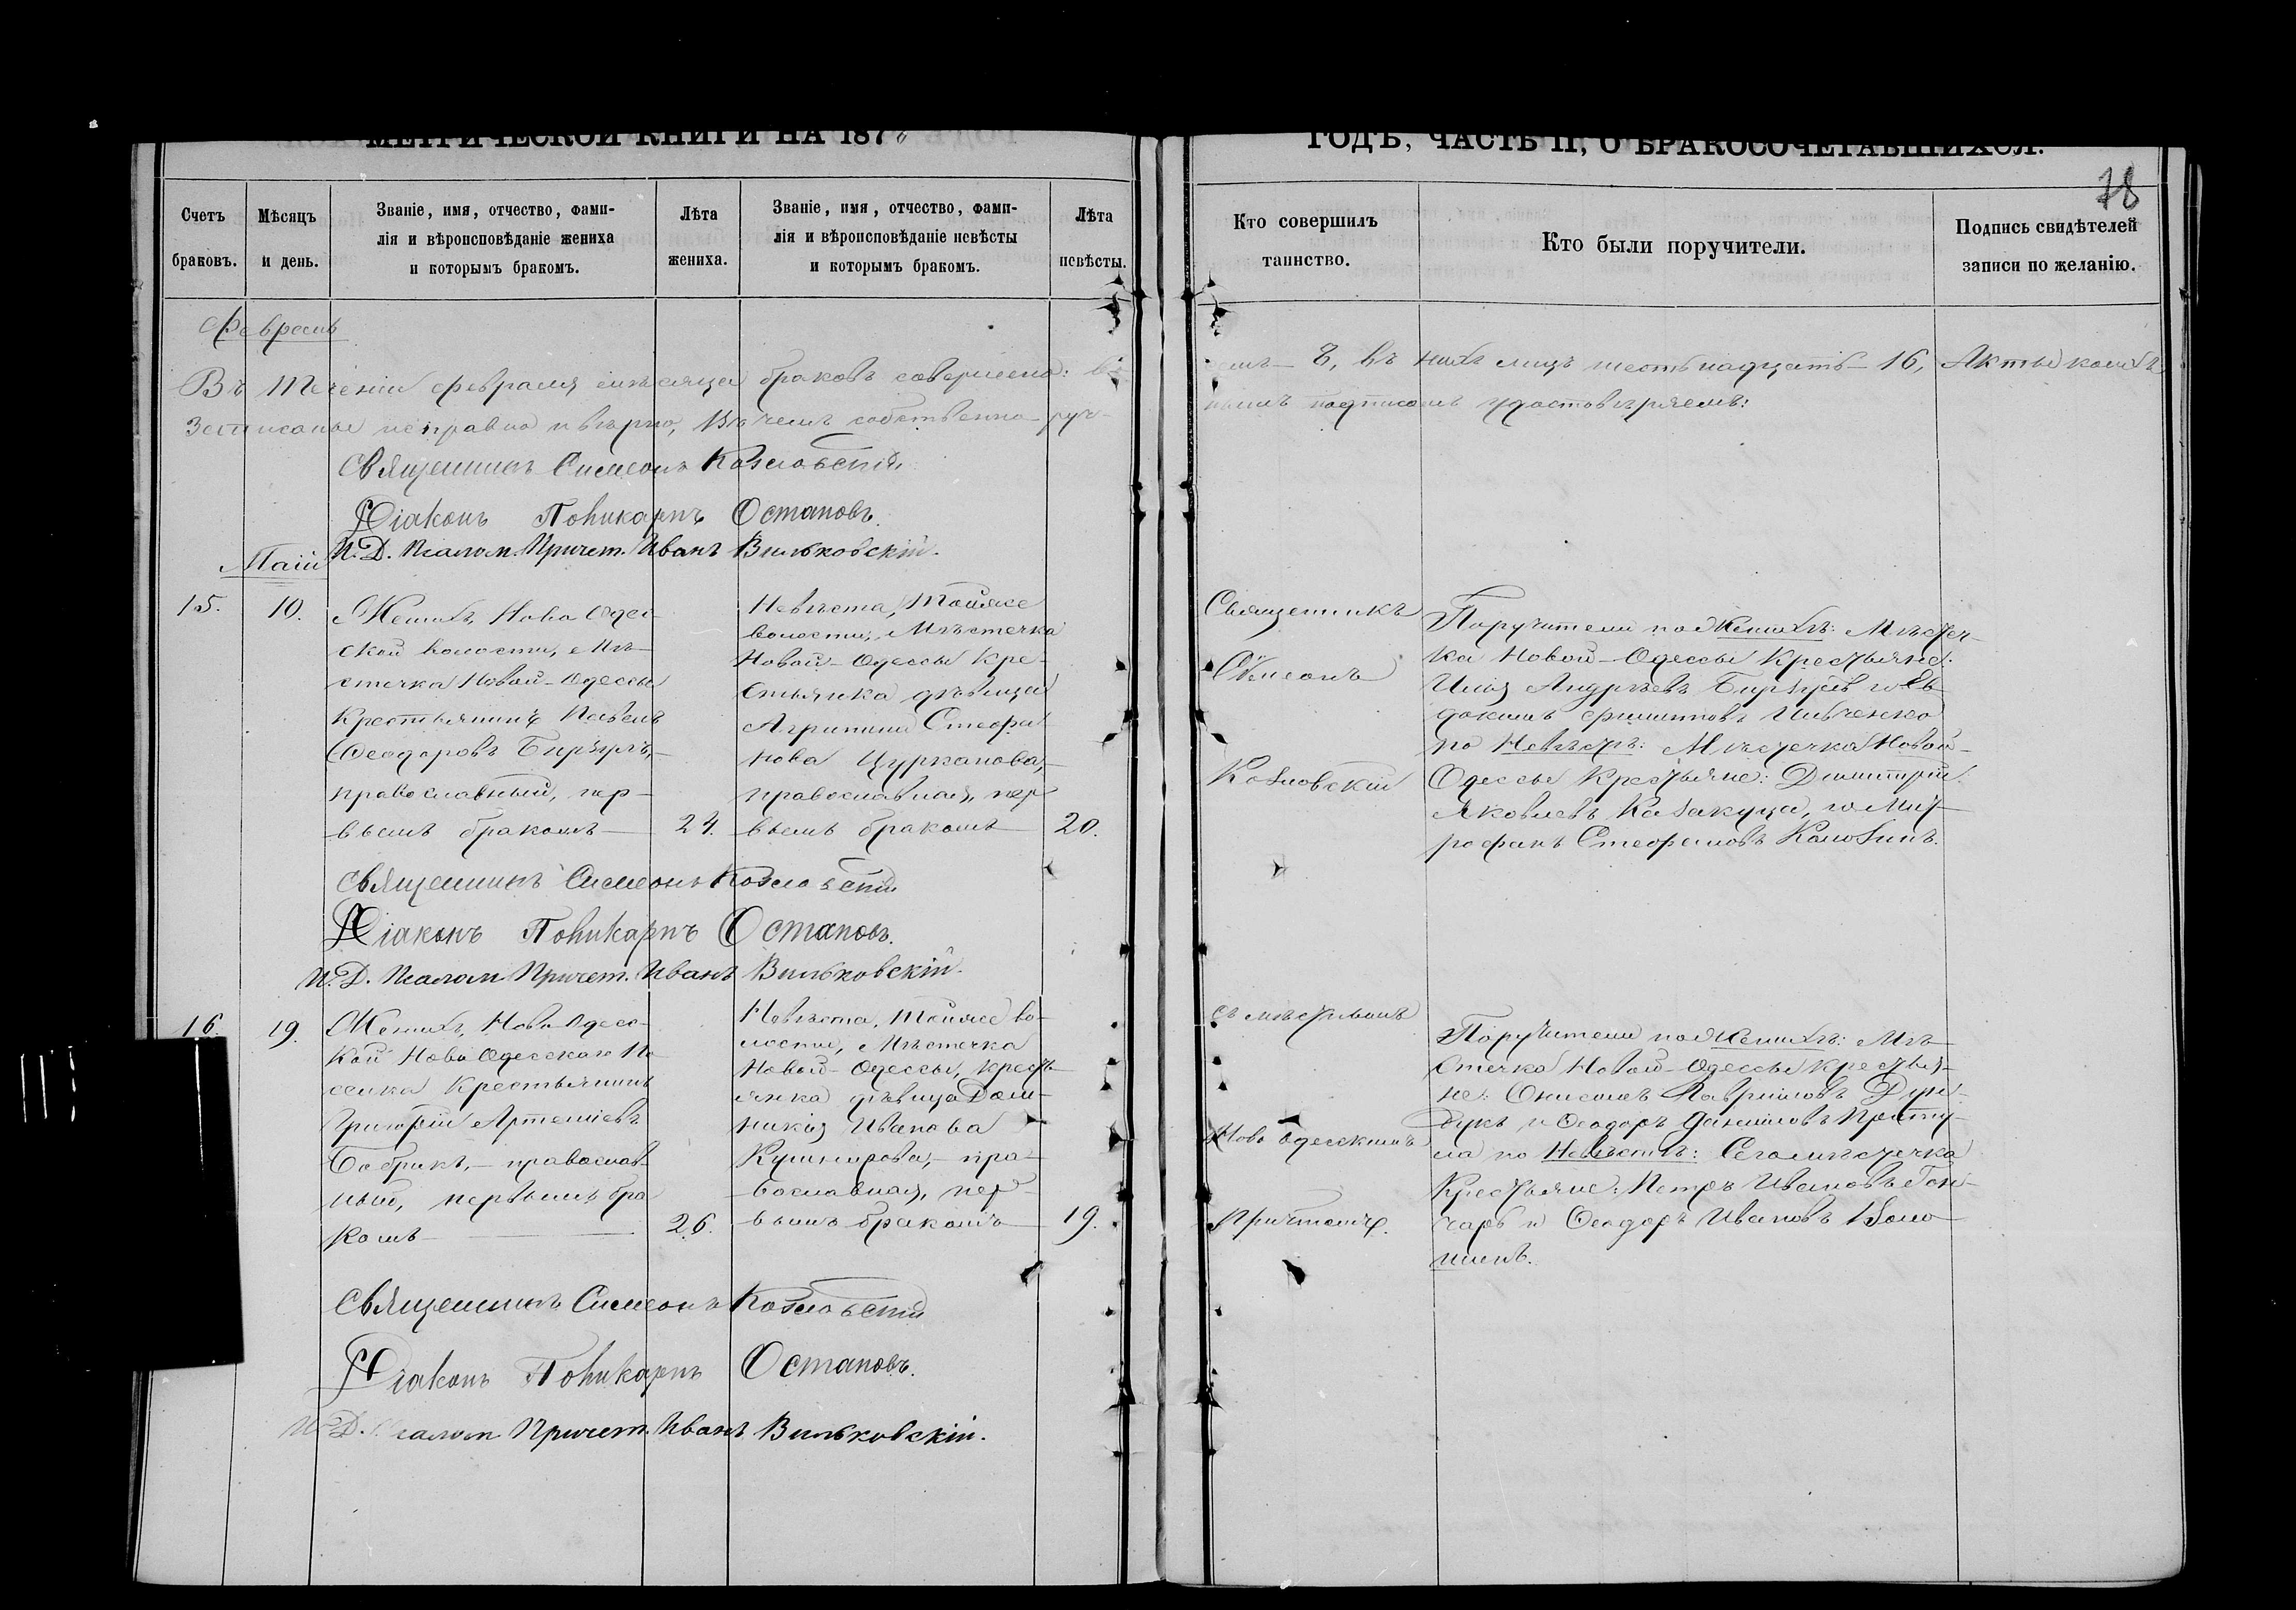 МЕТРИЧЕСКОЙ КНИГИ НА 187
ГОДЪ, ЧАСТЬ II, О БРАКОСОЧЕТАВШИХСЯ.
78
Счетъ браковъ.
Мѣсяцъ и день.
Званіе, имя, отчество, фами-
лія и вѣроисповѣданіе жениха
и которымъ бракомъ.
Лѣта жениха.
Званіе, имя, отчество, фами-
лія и вѣроисповѣданіе невѣсты
и которымъ бракомъ.
Лѣта невѣсты.
Кто совершилъ таинство.
Кто были поручители.
Подпись свидѣтелей записи по желанію.
Февраль
Въ теченіи февраля мѣсяца браковъ совершено: 8, въ нихъ лицъ шестьнадцать — 16, Акты коихъ
Записаны исправно и вѣрно, въ чемъ собственно-руч-
нымъ подписомъ удостовѣряемъ:
Священникъ Симеонъ Козловскій
Діаконъ Поликарпъ Остаповъ.
И. Д. Псалом. Причет. Иванъ Вильковскій.
Маій
15.
10.
Женихъ, Ново Одес-
ской волости, Мѣ-
стечка Новой-Одессы
Крестьянинъ Павелъ
Ѳеодоровъ
православный, пер-
вымъ бракомъ —
24.
Невѣста, Тойже
волости, Мѣстечка
Новой-Одессы Кре-
стьянка дѣвица
Агрипина Стефа-
нова Цурканова,
православная, пер-
вымъ бракомъ
20.
Священникъ
Симеонъ
Козловскій
Поручители по Женихѣ: Мѣстеч-
ка Новой-Одессы Крестьяне:
Илья Андреевъ и Ев-
докимъ Филиповъ Ильченко
по Невѣстѣ: Мѣстечка Новой-
Одессы Крестьяне: Димитрій
Яковлевъ Казакуца, и Мит-
рофанъ Стефановъ
Священникъ Симеонъ Козловскій
Діаконъ Поликарпъ Остаповъ.
И. Д. Псалом. Причет. Иванъ Вильковскій.
16.
19.
Женихъ, Ново Одесс-
кой Ново Одесскаго По-
сада Крестьянинъ
Григорій Артеміевъ
Бобрикъ, — православ-
ный, первымъ бра-
комъ —
26.
Невѣста, Тойже во-
лости, Мѣстечка
Новой-Одессы, крест-
янка дѣвица Дом-
никія Иванова
Кушнирова, — пра-
вославная, пер-
вымъ бракомъ
19.
съ мѣстнымъ
Ново Одесскимъ
Причтомъ.
Поручители по Женихѣ: Мѣ-
стечка Новой-Одессы Крестья-
не: Онисимъ Гавриловъ Дун-
дукъ и Ѳеодоръ Даниловъ
по Невѣстѣ: Сегомѣстечка
Крестьяне: Петръ Ивановъ Гон-
чаръ и Ѳеодоръ Ивановъ
Священникъ Симеонъ Козловскій
Діаконъ Поликарпъ Остаповъ.
И. Д. Псалом Причет. Иванъ Вильковскій.